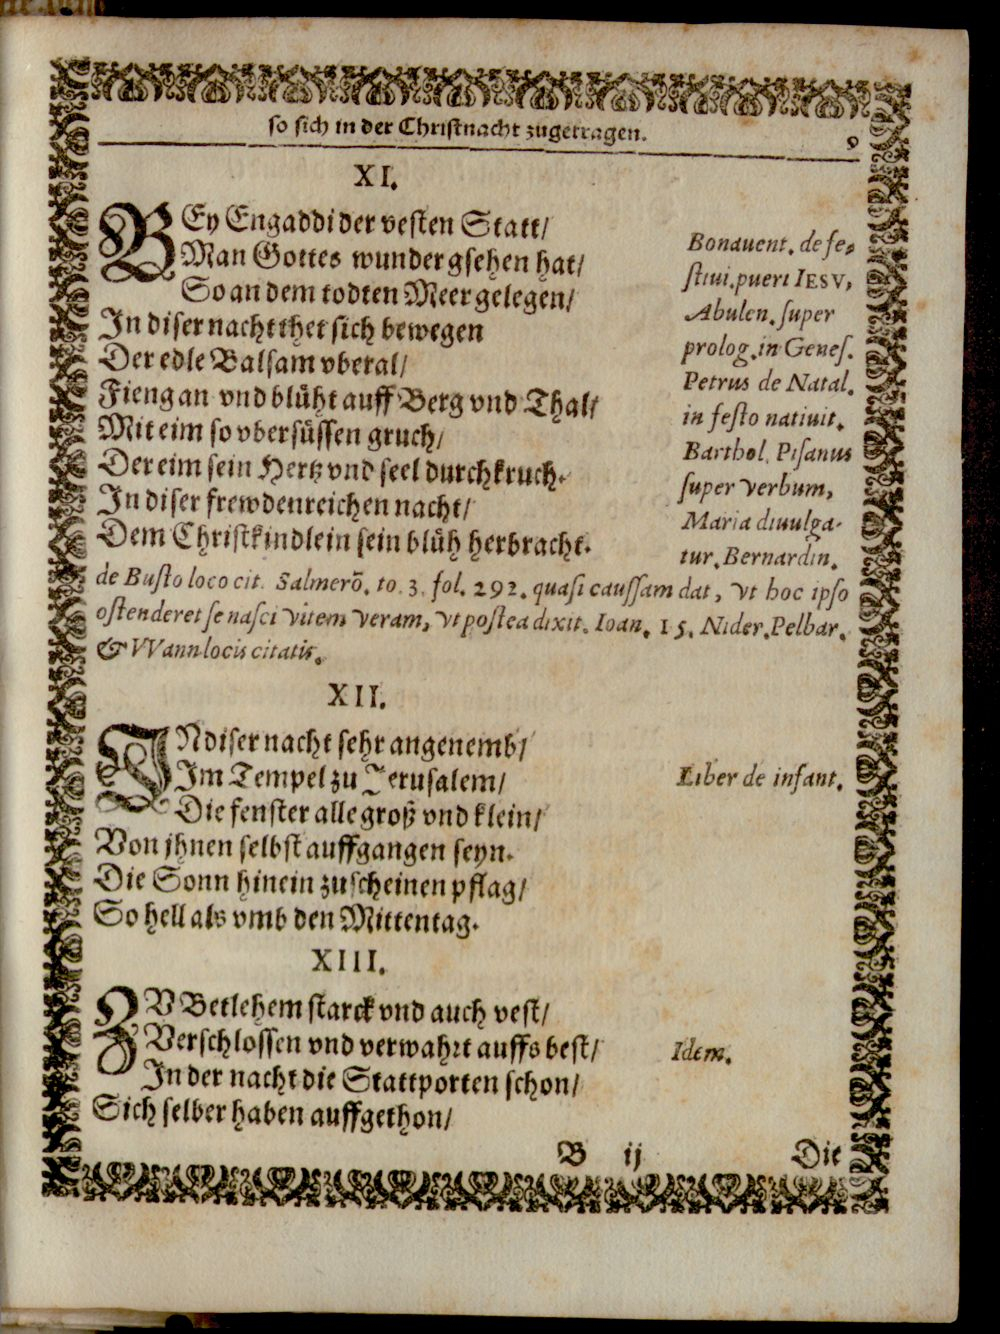 so sich in der Christnacht zugetragen. 9
XI.
BEy Engaddi der vesten Statt/
Man Gottes wunder gsehen hat/
So an dem todten Meer gelegen/
In diser nacht thet sich bewegen
Der edle Balsam vberal/
Fieng an vnd blüht auff Berg vnd Thal/
Mit eim so vbersüssen gruch/
Der eim sein Hertz vnd seel durchkruch.
In diser frewdenreichen nacht/
Dem Christkindlein sein blüh herbracht.
Bonauent. de fe-
stiui. pueri IESV,
Abulen. super
prolog. in Genes.
Petrus de Natal.
in festo natiuit.
Barthol. Pisanus
super verbum,
Maria diuulga-
tur. Bernardin.
de Busto loco cit. Salmerō. to. 3. fol. 292. quasi caussam dat, vt hoc ipso
ostenderet se nasci vitem veram, vt postea dixit. Ioan. 15. Nider. Pelbar.
& VVann locis citatis.
XII.
INdiser nacht sehr angenemb/
Im Tempel zu Jerusalem/
Die fenster alle groß vnd klein/
Von jhnen selbst auffgangen seyn.
Die Sonn hinein zuscheinen pflag/
So hell als vmb den Mittentag.
Liber de infant.
XIII.
ZV Betlehem starck vnd auch vest/
Verschlossen vnd verwahrt auffs best/
In der nacht die Stattporten schon/
Sich selber haben auffgethon/
Idem.
B ij Die